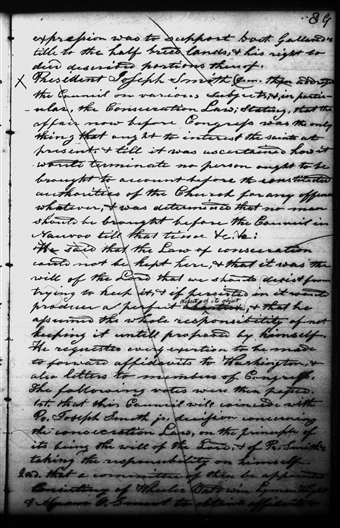 89
expression was to support Doct Galland's
title to the half breed lands, & his right to
deed described portions thereof.
X President Joseph Smith Jun. then addressed
the Council on various subjects, & in particu-
-ular, the Consecration Law; Stating, that the
affair now before Congress was the only
thing that ought to interest the saints at
present; & till it was ascertained how it
would terminate no person ought to be
brought to account before the constituted
authorities of the Church for any offence
whatever, & was determined that no
should be brought before the Council in
Nauvoo till that time &c. &c.
He said that the Law of consecration
could not be kept here, & that it was the
will of the Lord that we should desist from
trying to keep it, & if persisted in it would
produce a perfect
& that he
assumed the whole responsibility of not
keeping it untill proposed by himself.
He requested every exertion to be made
to forward affidavits to Washington &
also letters to members of Congress.
The following votes were then passed
1st. that this Council will coincide with
Pr. Joseph Smith jr. decision concerning
the consecration Law, on the principle of
its being the will of the Lord, & of Pr. Smith's
taking the responsibility on himself.
2nd. that a committee of three be appointed
Consisting of Wheeler Baldwin Lyman Wight
& Abram O. Smoot to obtain affidavits &